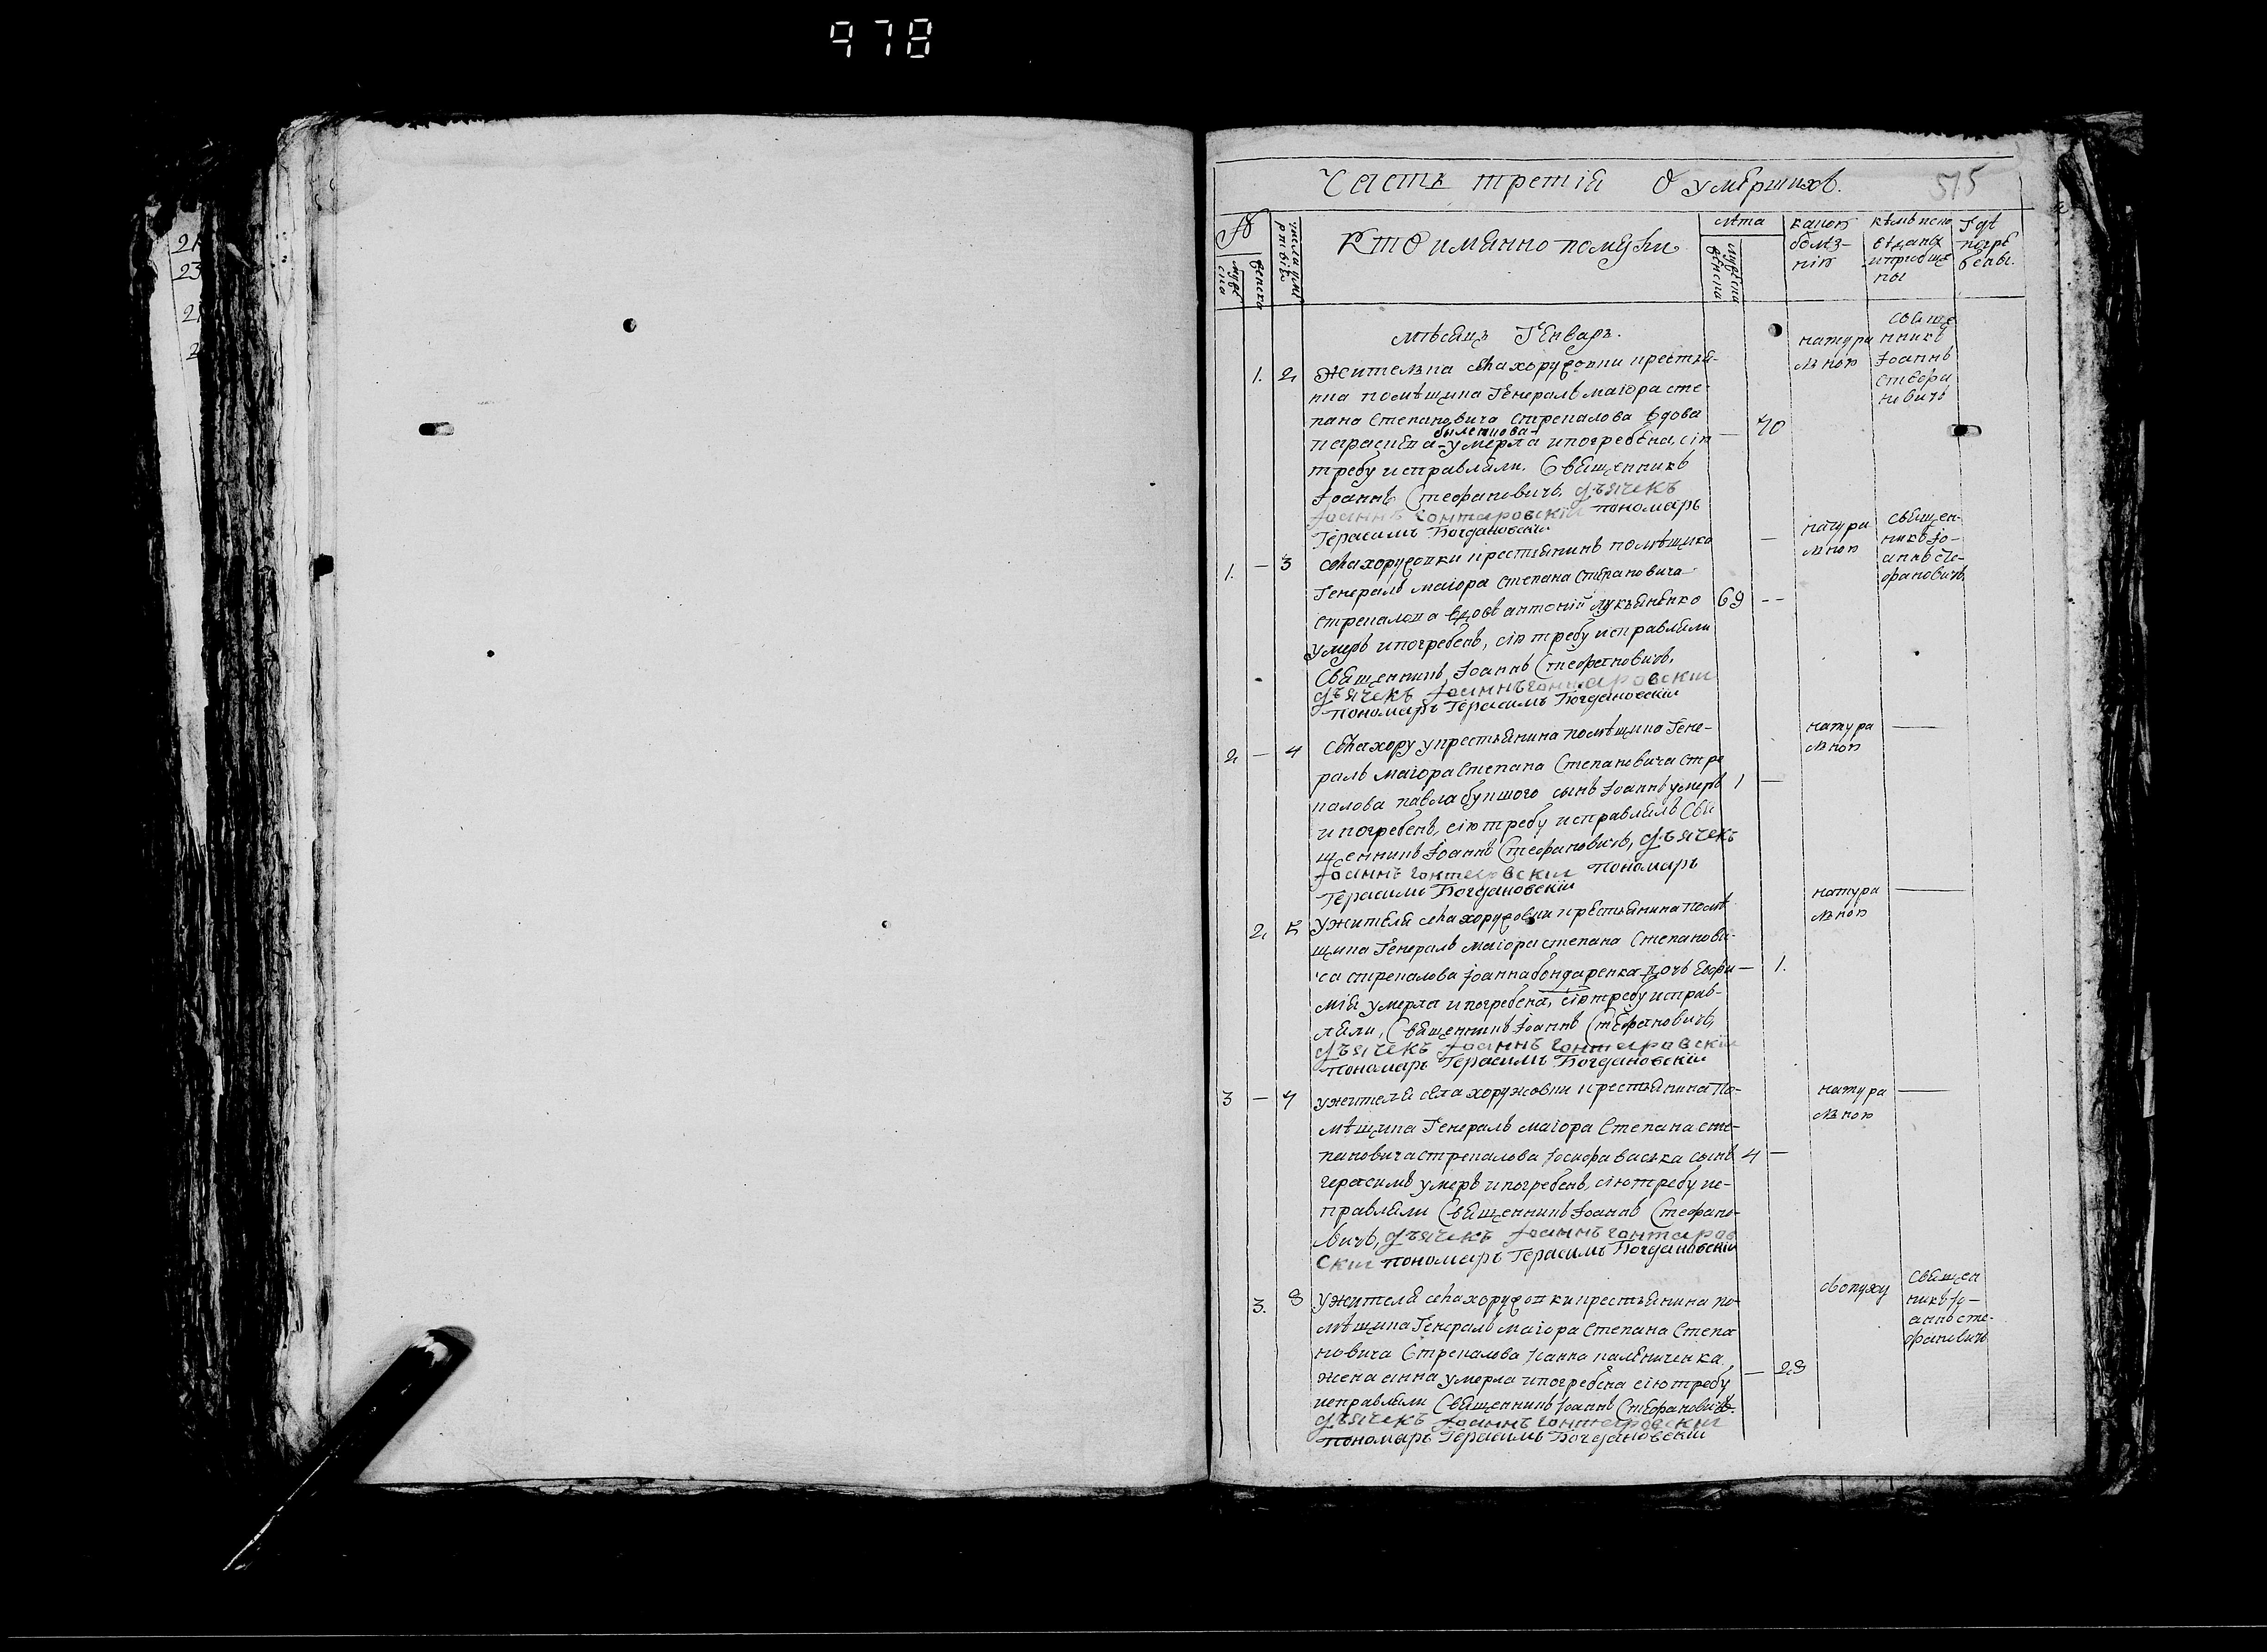 978
21
23
21
2
Часть третія О умершихъ.
515
№
мужеска
женска
числа умертвія
Кто имянно помершіи
лѣта
мужеска
женска
какою болѣзнію
кѣмъ исповѣданы и пріобщены
Гдѣ погребены.
мѣсяцъ Генварь.
1. 2
Жителька села хоружовки крестья-
нка помѣщика Генералъ маіора сте-
пана Степановича Стрекалова вдова
параскева умерла и погребена, сію
требу исправляли. Священникъ
Іоаннъ Стефановичъ, дьячекъ
Іоаннъ Гонтаровскіи пономарь
Герасимъ Богдановскіи
— 70
натуралною
священникъ Іоаннъ Стефановичъ
1. — 3
села хоружовки крестьянинъ помѣщика
Генералъ маіора степана степановича
стрекалова вдовъ антоній лукьяненко
умеръ и погребенъ, сію требу исправляли
Священникъ, Іоаннъ Стефановичъ,
дьячекъ Іоаннъ Гонтаровскіи
пономарь Герасимъ Богдановскіи
69 —
натуралною
священникъ Іоаннъ Стефановичъ
2 — 4
села хору у крестьянина помѣщика Гене-
ралъ маіора Степана Степановича стре
калова павла сынъ Іоаннъ умеръ
и погребенъ, сію требу исправляли Свя
щенникъ Іоаннъ Стефановичъ, дьячекъ
Іоаннъ Гонтаровскіи пономарь
Герасимъ Богдановскіи
1 —
натуралною —
2. 5
У жителя села хоружовки крестьянина помѣ
щика Генералъ маіора степана Степанови-
ча стрекалова Іоанна бондаренка дочь Евфи
мія умерла и погребена, сію требу исправ-
ляли, Священникъ Іоаннъ Стефановичъ,
дьячекъ Іоаннъ Гонтаровскіи
пономарь Герасимъ Богдановскіи
— 1.
натуралною —
3 — 7
у жителя села хоружовки крестьянина По-
мѣщика Генералъ маіора Степана сте-
пановича стрекалова Іосифа васька сынъ
герасимъ умеръ и погребенъ, сію требу ис-
правляли Священникъ Іоаннъ Стефано-
вичъ, дьячекъ Іоаннъ Гонтаров
скіи пономарь Герасимъ Богдановскіи
4 —
натуралною —
3. 8
У жителя села хоружовки крестьянина по-
мѣщика Генералъ маіора Степана Степа
новича Стрекалова Іоанна
жена анна умерла и погребена сію требу
исправляли Священникъ Іоаннъ Стефановичъ.
дьячекъ Іоаннъ Гонтаровскіи
пономарь Герасимъ Богдановскіи
— 29
священникъ Іоаннъ Стефановичъ